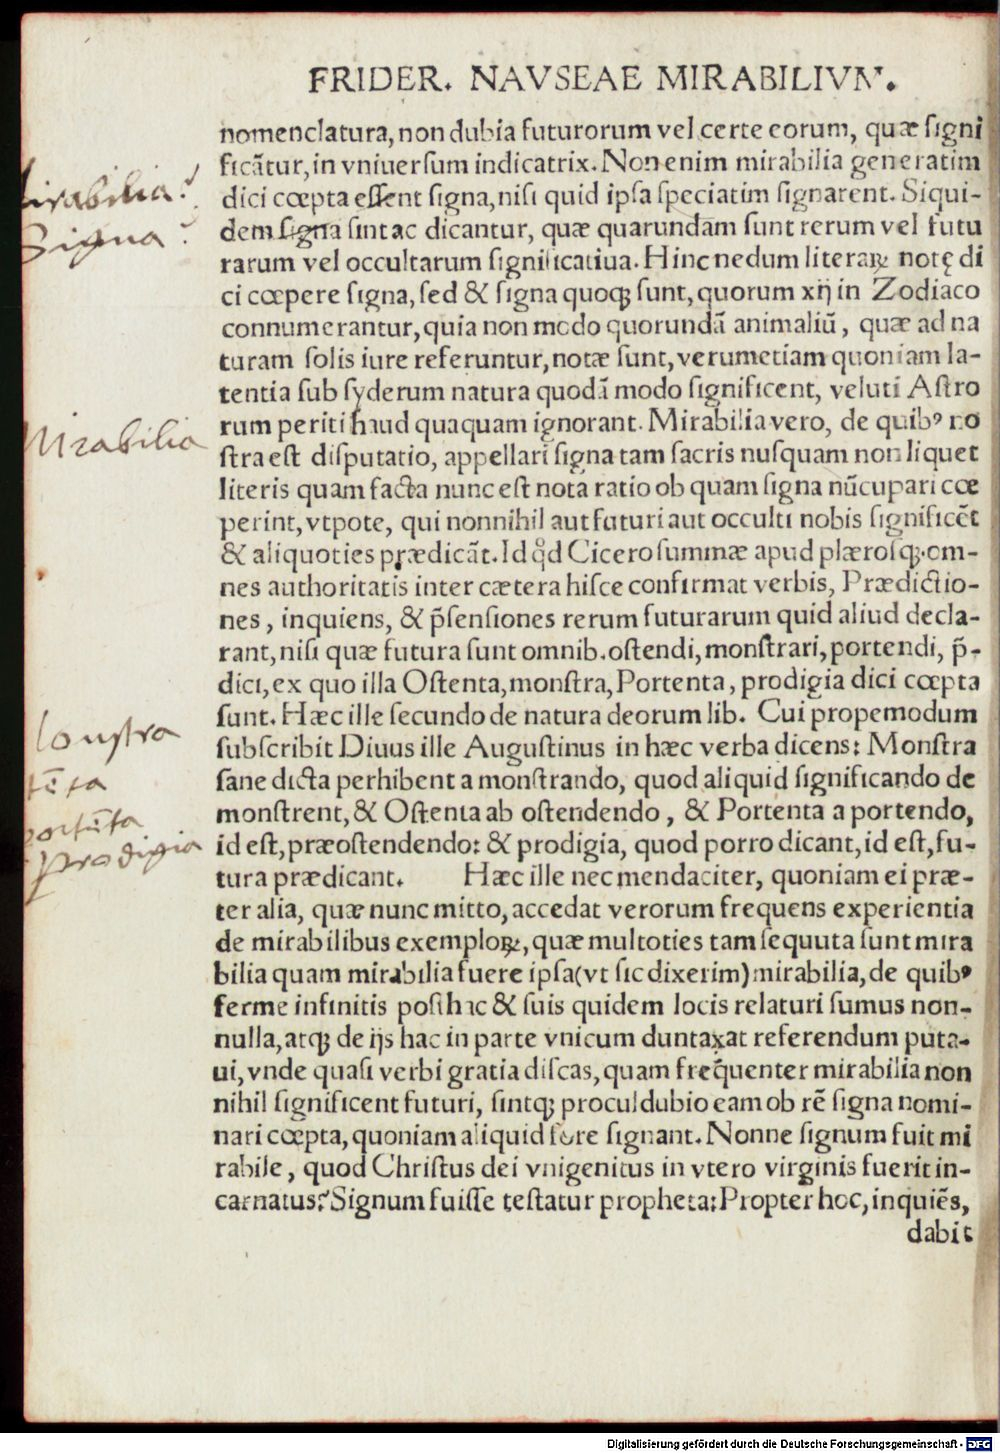 FRIDER. NAVSEAE MIRABILIVM.
nomenclatura, non dubia futurorum vel certe eorum, quæ ſigni
ficãtur, in vniuerſum indicatrix. Non enim mirabilia generatim
dici cœpta eſſent ſigna, niſi quid ipſa ſpeciatim ſignarent. Siqui-
dem ſigna ſint ac dicantur, quæ quarundam ſunt rerum vel futu
rarum vel occultarum ſignificatiua. Hinc nedum literaꝝ notę di
ci cœpere ſigna, ſed & ſigna quoqꝫ ſunt, quorum xij in Zodiaco
connumerantur, quia non modo quorundã animaliũ, quæ ad na
turam ſolis iure referuntur, notæ ſunt, verumetiam quoniam la-
tentia ſub ſyderum natura quodã modo ſignificent, veluti Aſtro
rum periti haud quaquam ignorant. Mirabilia vero, de quibꝰ no
ſtra eſt diſputatio, appellari ſigna tam ſacris nuſquam non liquet
literis quam facta nunc eſt nota ratio ob quam ſigna nũcupari cœ
perint, vtpote, qui nonnihil aut futuri aut occulti nobis ſignificẽt
& aliquoties prædicãt. Id qͦd Cicero ſummæ apud plæroſqꝫ om-
nes authoritatis inter cætera hiſce confirmat verbis, Prædictio-
nes, inquiens, & p̃ſenſiones rerum futurarum quid aliud decla-
rant, niſi quæ futura ſunt omnib. oſtendi, monſtrari, portendi, p̃-
dici, ex quo illa Oſtenta, monſtra, Portenta, prodigia dici cœpta
ſunt. Hæc ille ſecundo de natura deorum lib. Cui propemodum
ſubſcribit Diuus ille Auguſtinus in hæc verba dicens: Monſtra
ſane dicta perhibent a monſtrando, quod aliquid ſignificando de
monſtrent, & Oſtenta ab oſtendendo, & Portenta a portendo,
id eſt, præoſtendendo: & prodigia, quod porro dicant, id eſt, fu-
tura prædicant. Hæc ille nec mendaciter, quoniam ei præ-
ter alia, quæ nunc mitto, accedat verorum frequens experientia
de mirabilibus exemploꝝ, quæ multoties tam ſequuta ſunt mira
bilia quam mirabilia fuere ipſa (vt ſic dixerim) mirabilia, de quibꝰ
ferme infinitis poſthac & ſuis quidem locis relaturi ſumus non-
nulla, atqꝫ de ijs hac in parte vnicum duntaxat referendum puta-
ui, vnde quaſi verbi gratia diſcas, quam freq̃uenter mirabilia non
nihil ſignificent futuri, ſintqꝫ proculdubio eam ob rẽ ſigna nomi-
nari cœpta, quoniam aliquid fore ſignant. Nonne ſignum fuit mi
rabile, quod Chriſtus dei vnigenitus in vtero virginis fuerit in-
carnatus? Signum fuiſſe teſtatur propheta: Propter hoc, inquiẽs,
dabit
irabilia?
Signa?
Mirabilia
onſtra
tẽta
portẽta
prodigia
Digitalisierung gefördert durch die Deutsche Forschungsgemeinschaft - DFG